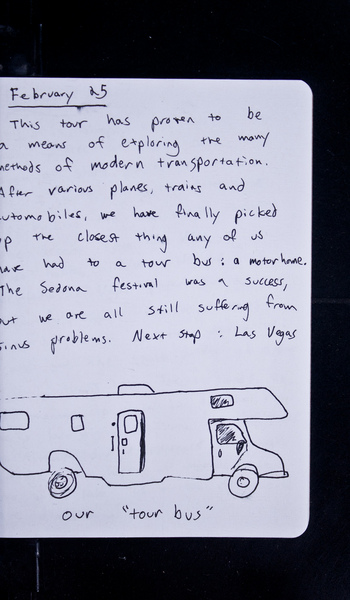 February 25
This tour has proven to be
a means of exploring the many
methods of modern transportation.
After various planes, trains and
automobiles, we have finally picked
up the closest thing any of us
have had to a tour bus: a motorhome.
The Sedona festival was a success,
but we are all still suffering from
sinus problems. Next stop: Las Vegas
our "tour bus"